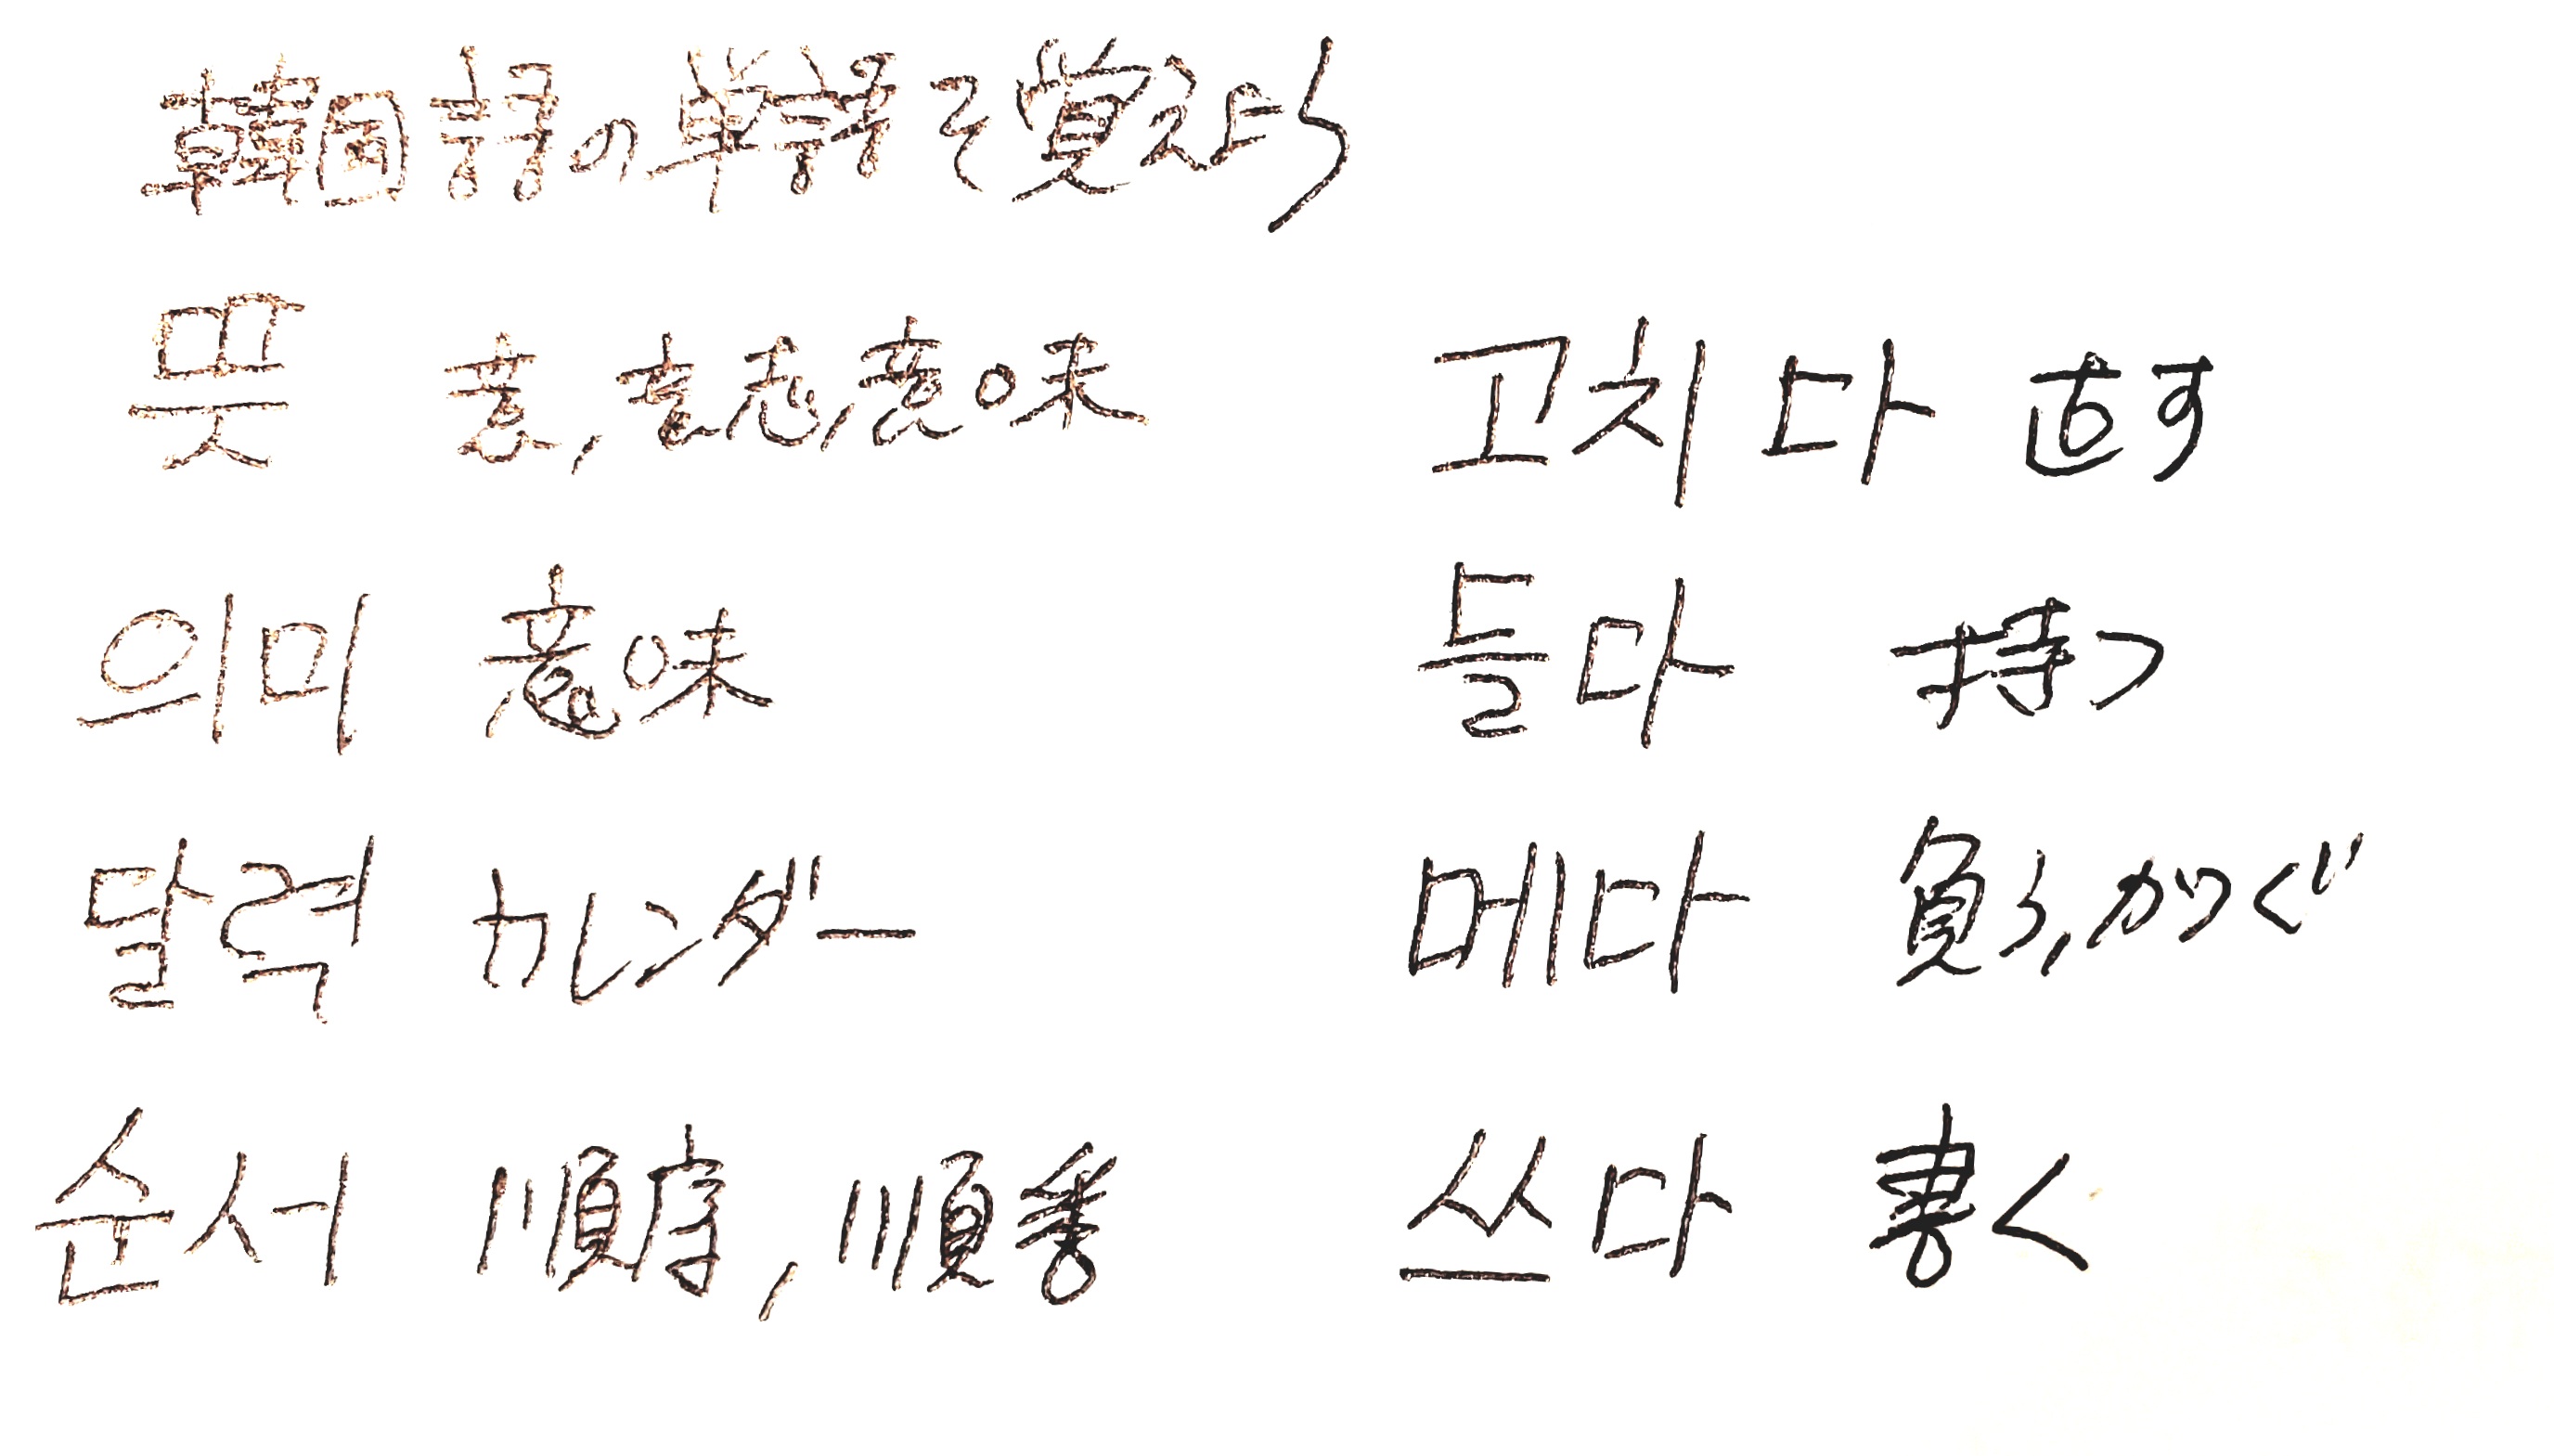 韓国語の単語を覚えよう
뜻 意,意志,意味
의미 意味
달력 カレンダー
순서 順序,順番
고치다 直す
들다 持つ
메다 負う,かつぐ
쓰다 書く